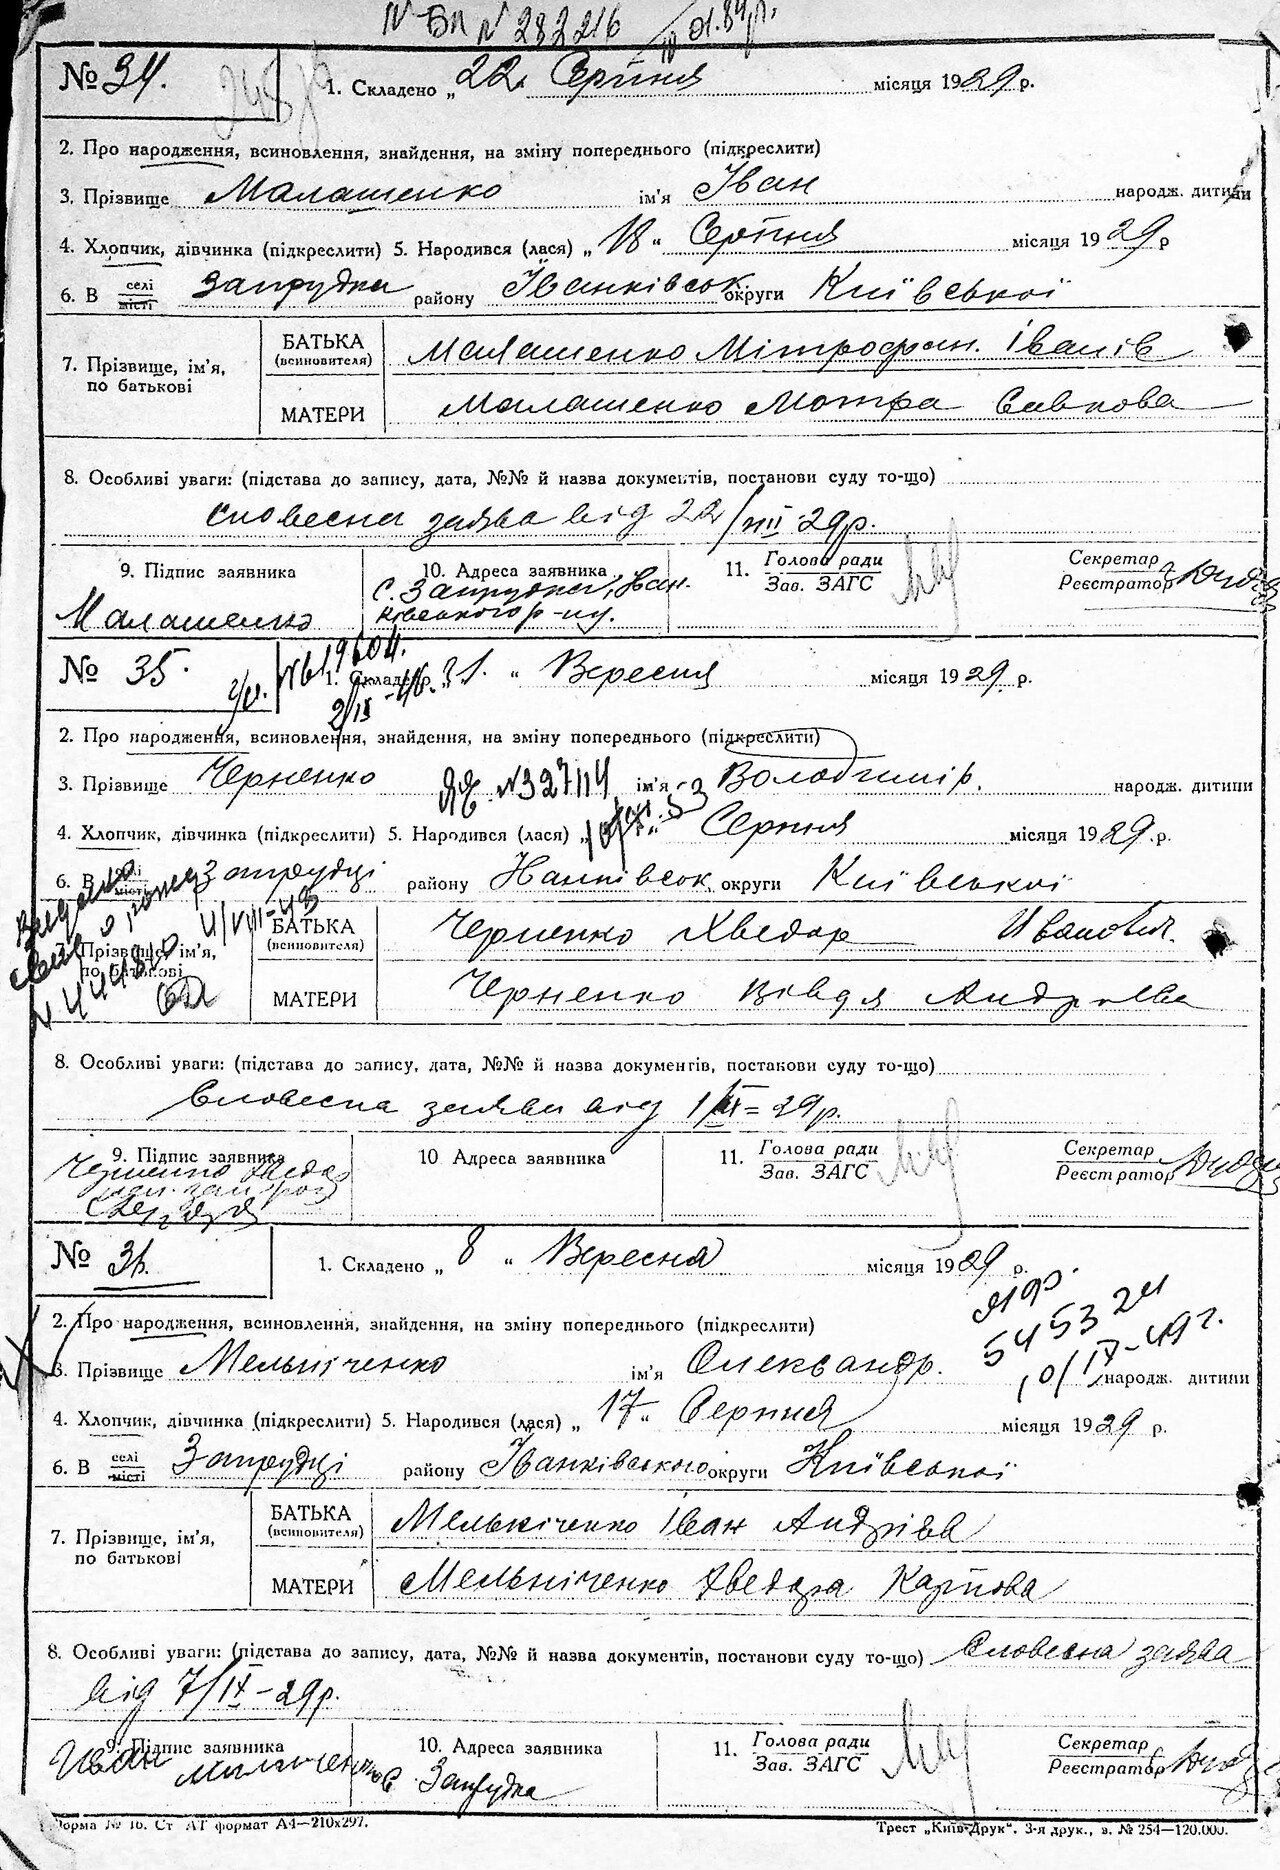 № 34.
1. Складено „22. Серпня місяця 1929 р.
2. Про народження, всиновлення, знайдення, на зміну попереднього (підкреслити)
3. Прізвище Малашенко ім'я Іван народж. дитини
4. Хлопчик, дівчинка (підкреслити) 5. Народився (лася) „ 18 “ Серпня місяця 1929 р
6. В селі місті Запрудка району Іванківськ. округи Київської
7. Прізвище, ім'я, по батькові
БАТЬКА (всиновителя) Малашенко Мітрофан. Іванів
МАТЕРИ Малашенко Мотра Савкова
8. Особливі уваги: (підстава до запису, дата, №№ й назва документів, постанови суду то-що)
Словесна заява від 22/VIII 29р.
9. Підпис заявника
Малашенко
10. Адреса заявника
с. Запрудка, Іван-
ківського р-ну.
11. Голова ради
Зав. ЗАГС
Секретар
Реєстратор
№ 35.
1. Складено „ 1. “ Вересня місяця 1929. р.
2. Про народження, всиновлення, знайдення, на зміну попереднього (підкреслити)
3. Прізвище Черненко ім'я Володимир. народж. дитини
4. Хлопчик, дівчинка (підкреслити) 5. Народився (лася) „ Серпня місяця 1929 .р.
6. В місті Запрудці району Нанківськ. округи Київської
Прізвище, ім'я, по батькові
БАТЬКА (всиновителя) Черненко Хведор Иванович.
МАТЕРИ Черненко Вівдя Андрієва
8. Особливі уваги: (підстава до запису, дата, №№ й назва документів, постанови суду то-що)
Словесна заява від 1/IX=29р.
9. Підпис заявника
Черненко
10 Адреса заявника
11. Голова ради
Зав. ЗАГС
Секретар
Реєстратор
№ 36.
1. Складено „ 8 “ Вересня місяця 1929 р.
545324
10/IX-49г.
2. Про народження, всиновлення, знайдення, на зміну попереднього (підкреслити)
3. Прізвище Мельніченко ім'я Олександр. народж. дитини
4. Хлопчик, дівчинка (підкреслити) 5. Народився (лася) „ 17 “ Серпня місяця 1929 р.
6. В селі місті Запрудці району Іванківського округи Київської
7. Прізвище, ім'я, по батькові
БАТЬКА (всиновителя) Мельніченко Іван Андріїв
МАТЕРИ Мельніченко Хведора Карпова
8. Особливі уваги: (підстава до запису, дата, №№ й назва документів, постанови суду то-що) Словесна заява
від 7/IX-29р.
9. Підпис заявника
Иван
10. Адреса заявника
с Запрудка
11. Голова ради
Зав. ЗАГС
Секретар
Реєстратор
Форма № 16. Ст АТ формат А4—210х297.
Трест „Київ-Друк“. 3-я друк., з. № 254—120.000.